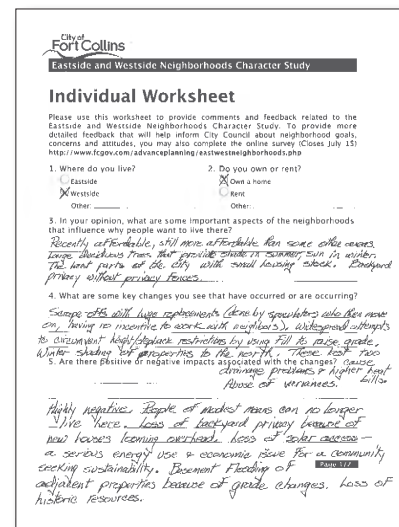 City of
Fort Collins
Eastside and Westside Neighborhoods Character Study
Individual Worksheet
Please use this worksheet to provide comments and feedback related to the
Eastside and Westside Neighborhoods Character Study. To provide more
detailed feedback that will help inform City Council about neighborhood goals,
concerns and attitudes, you may also complete the online survey (Closes July 15)
http://www.fcgov.com/advanceplanning/eastwestneighborhoods.php
1. Where do you live?
Eastside
Westside
Other:
2. Do you own or rent?
Own a home
Rent
Other:
3. In your opinion, what are some important aspects of the neighborhoods
that influence why people want to live there?
Recently affordable, still more affordable than some other areas.
Large deciduous trees that provide shade in summer, sun in winter.
The parts of the city with small housing stock. Backyard
privacy without privacy fences.
4. What are some key changes you see that have occurred or are occurring?
Scrape offs with huge replacements (done by speculators who then move
on, having no incentive to work with neighbors). Widespread attempts
to circumvent height/setback restrictions by using fill to raise grade.
Winter shading of properties to the north. These last two
5. Are there positive or negative impacts associated with the changes? cause
drainage problems & higher heat
bills.
Abuse of variances.
Highly negative. People of modest means can no longer
live here. Loss of backyard privacy because of
new houses looming overhead. Loss of solar access —
a serious energy use & economic issue for a community
seeking sustainability. Basement flooding of
Page 1/2
adjacent properties because of grade changes. Loss of
historic resources.